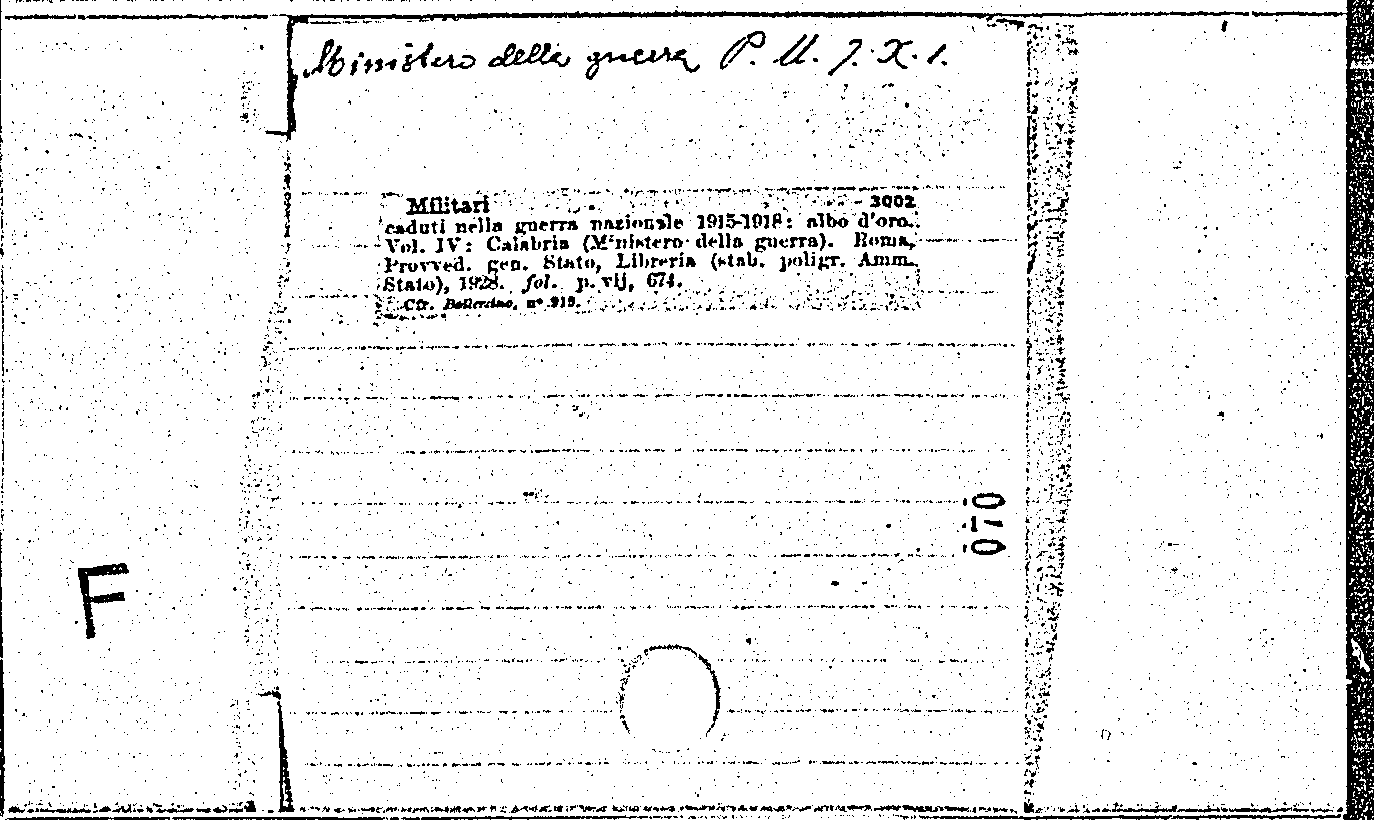 Ministero della guerra P. U. 7. X. 1.
Militari 3002
caduti nella guerra nazionale 1915-1918: albo d'oro.
Vol. IV: Calabria (Ministero della guerra). Roma,
Provved. gen. Stato, Libreria (stab. poligr. Amm.
Stato), 1928. fol. p. vij, 674.
Cfr. Bollettino, n° 919.
070
F